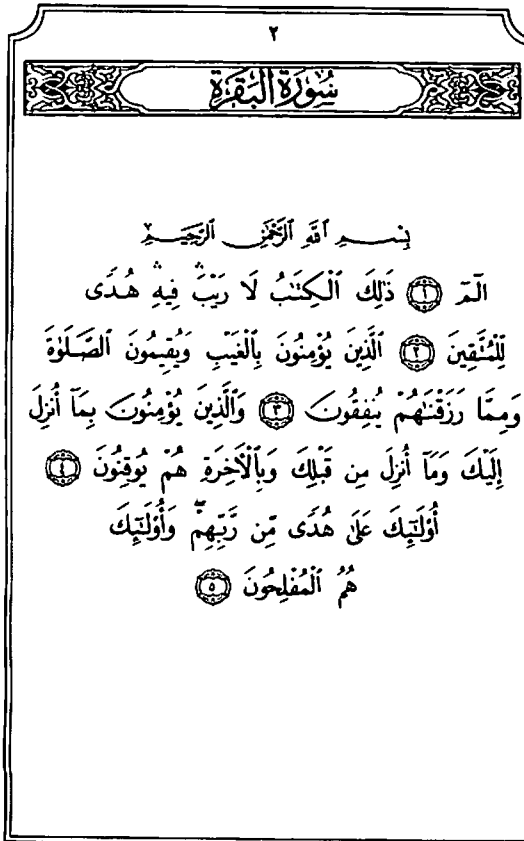 ٢
سُورَةُ البَقَرَةِ
بِسْمِ ٱللَّهِ ٱلرَّحْمَٰنِ ٱلرَّحِيمِ
الٓمٓ ١ ذَٰلِكَ ٱلْكِتَٰبُ لَا رَيْبَ ۛ فِيهِ ۛ هُدًى
لِّلْمُتَّقِينَ ٢ ٱلَّذِينَ يُؤْمِنُونَ بِٱلْغَيْبِ وَيُقِيمُونَ ٱلصَّلَوٰةَ
وَمِمَّا رَزَقْنَٰهُمْ يُنفِقُونَ ٣ وَٱلَّذِينَ يُؤْمِنُونَ بِمَآ أُنزِلَ
إِلَيْكَ وَمَآ أُنزِلَ مِن قَبْلِكَ وَبِٱلْأَخِرَةِ هُمْ يُوقِنُونَ ٤
أُو۟لَٰٓئِكَ عَلَىٰ هُدًى مِّن رَّبِّهِمْ ۖ وَأُو۟لَٰٓئِكَ
هُمُ ٱلْمُفْلِحُونَ ٥